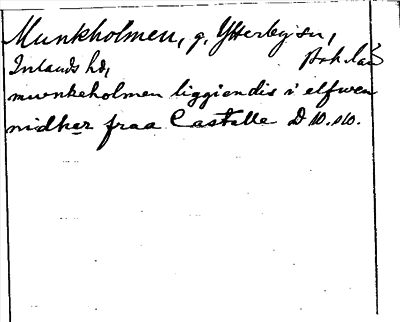 Munkholmen, g, Ytterby sn,
Inlands hd, Boh län
munkeholmen liggiendis i elfwen
nidher fraa Castelle D 10.